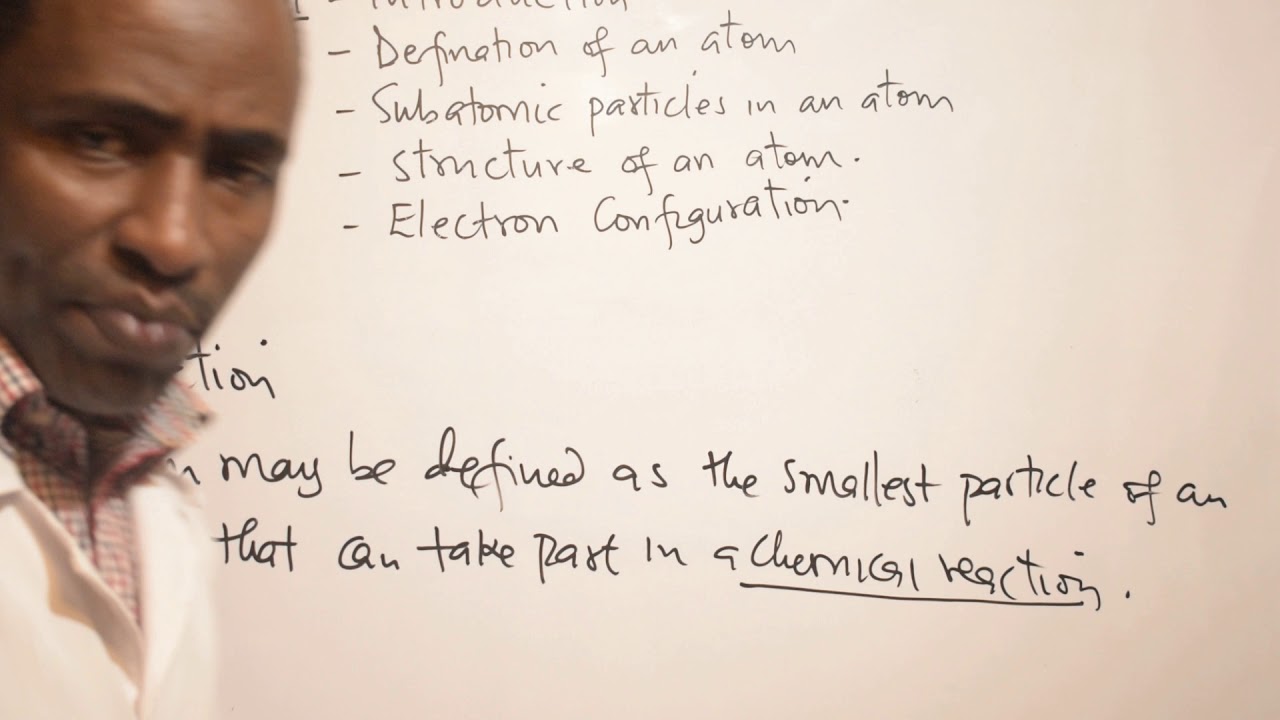 - Introduction
- Defination of an atom
- Subatomic particles in an atom
- Structure of an atom.
- Electron Configuration.
tion
may be defined as the smallest particle of an
that can take part in a chemical reaction.